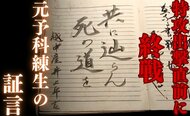 特攻出撃直前に
終戦
共に辿らん
死の道を
元予科練生の
証言